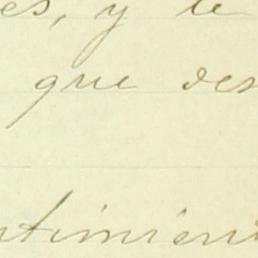 es, y le
que des
ntimient